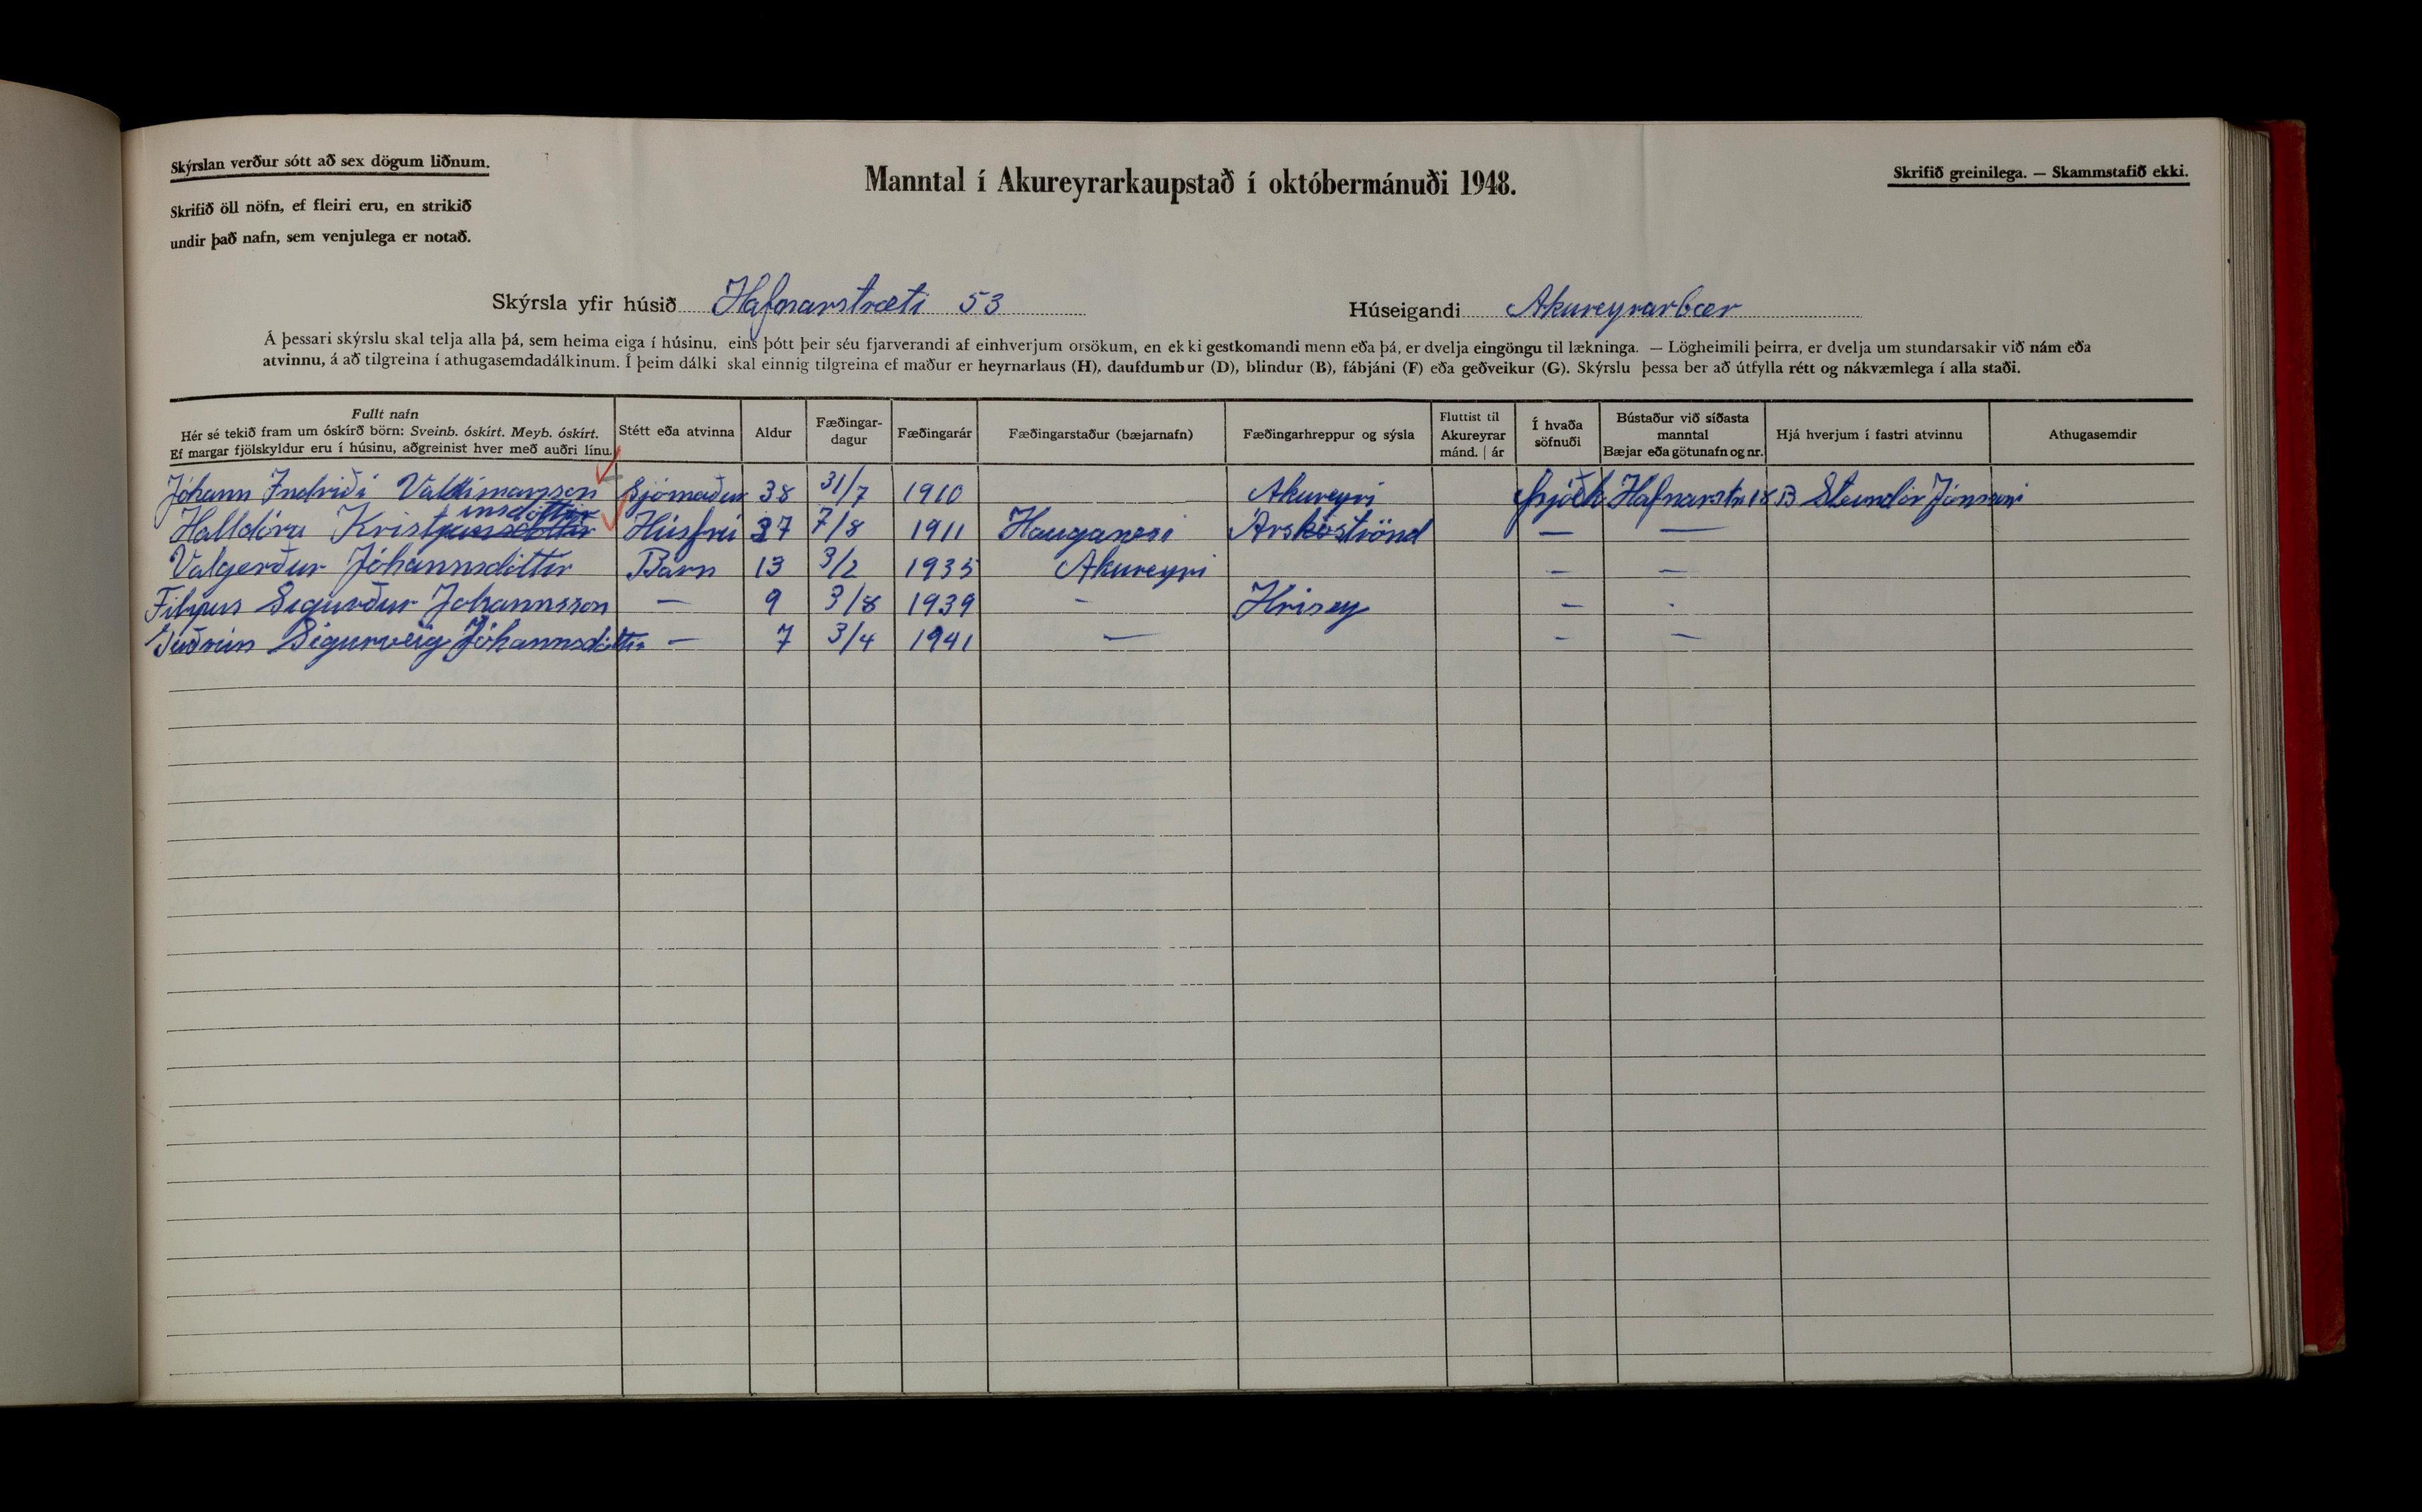 Skýrslan verður sótt að sex dögum liðnum.
Skrifið öll nöfn, ef fleiri eru, en strikið
undir það nafn, sem venjulega er notað.
Manntal í Akureyrarkaupstað í októbermánuði 1948.
Skrifið greinilega. — Skammstafið ekki.
Skýrsla yfir húsið Hafnarstræti 53 Húseigandi Akureyrarbær
Á þessari skýrslu skal telja alla þá, sem heima eiga í húsinu, eins þótt þeir séu fjarverandi af einhverjum orsökum, en ekki gestkomandi menn eða þá, er dvelja eingöngu til lækninga. — Lögheimili þeirra, er dvelja um stundarsakir við nám eða
atvinnu, á að tilgreina í athugasemdadálkinum. Í þeim dálki skal einnig tilgreina ef maður er heyrnarlaus (H), daufdumbur (D), blindur (B), fábjáni (F) eða geðveikur (G). Skýrslu þessa ber að útfylla rétt og nákvæmlega í alla staði.
Fullt nafn
Hér sé tekið fram um óskírð börn: Sveinb. óskírt. Meyb. óskírt.
Ef margar fjölskyldur eru í húsinu, aðgreinist hver með auðri línu.
Stétt eða atvinna
Aldur
Fæðingar-
dagur
Fæðingarár
Fæðingarstaður (bæjarnafn)
Fæðingarhreppur og sýsla
Fluttist til
Akureyrar
mánd. | ár
Í hvaða
söfnuði
Bústaður við síðasta
manntal
Bæjar eða götunafn og nr.
Hjá hverjum í fastri atvinnu
Athugasemdir
Jóhann Indriði Valdimarsson Sjómaður 38 31/7 1910 Akureyri þjóðk Hafnarstr 18 B Steindór Jónssyni
insdóttir
Halldóra Kristjánsdóttir Húsfrú 37 7/8 1911 Hauganesi Árskóströnd — —
Valgerður Jóhannsdóttir Barn 13 3/2 1935 Akureyri — —
Filipus Sigurður Jóhannsson — 9 3/8 1939 - Hrísey — -
Guðrún Sigurveig Jóhannsdóttir — 7 3/4 1941 — - —